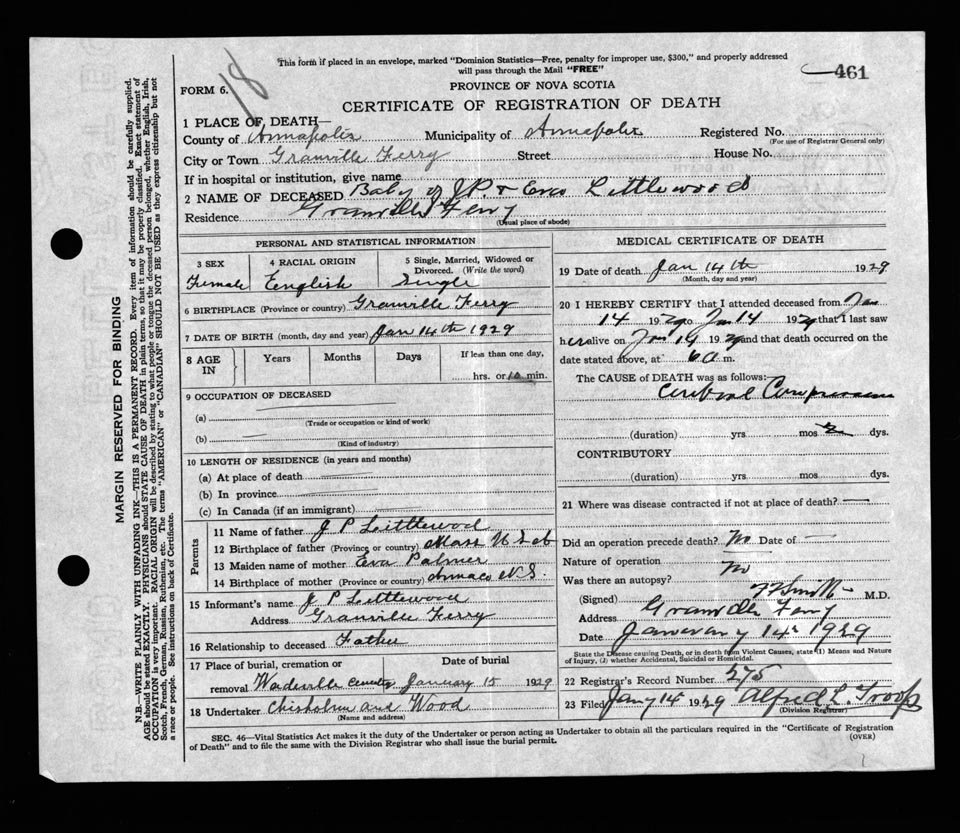 18
This form if placed in an envelope, marked "Dominion Statistics—Free, penalty for improper use, $300," and properly addressed
will pass through the Mail "FREE"
461
FORM 6.
PROVINCE OF NOVA SCOTIA
CERTIFICATE OF REGISTRATION OF DEATH
1 PLACE OF DEATH—
County of Annapolis Municipality of Annapolis Registered No.
(For use of Registrar General only)
City or Town Granville Ferry Street House No.
If in hospital or institution, give name
2 NAME OF DECEASED Baby of J.P. & Eva Littlewood
Residence Granville Ferry
(Usual place of abode)
PERSONAL AND STATISTICAL INFORMATION
3 SEX
Female
4 RACIAL ORIGIN
English
5 Single, Married, Widowed or
Divorced. (Write the word)
Single
6 BIRTHPLACE (Province or country) Granville Ferry
7 DATE OF BIRTH (month, day and year) Jan 14th 1929
8 AGE
IN
Years Months Days If less than one day,
hrs. or 10 min.
9 OCCUPATION OF DECEASED
(a)
(Trade or occupation or kind of work)
(b)
(Kind of industry)
10 LENGTH OF RESIDENCE (in years and months)
(a) At place of death
(b) In province
(c) In Canada (if an immigrant)
Parents
11 Name of father J P Littlewood
12 Birthplace of father (Province or country) Mass
13 Maiden name of mother Eva Palmer
14 Birthplace of mother (Province or country) N S
15 Informant's name J P Littlewood
Address Granville Ferry
16 Relationship to deceased Father
17 Place of burial, cremation or
removal
Date of burial
January 15 1929
18 Undertaker Chisholm and Wood
(Name and address)
MEDICAL CERTIFICATE OF DEATH
19 Date of death Jan 14th 1929
(Month, day and year)
20 I HEREBY CERTIFY that I attended deceased from Jan
14 1929 to Jan 14 1929 that I last saw
her alive on Jan 14 1929 and that death occurred on the
date stated above, at 6 a m.
The CAUSE OF DEATH was as follows:
Cerebral Compression
(duration) yrs mos dys.
CONTRIBUTORY
(duration) yrs mos dys.
21 Where was disease contracted if not at place of death?
Did an operation precede death? No Date of
Nature of operation
Was there an autopsy? No
(Signed) M.D.
Granville Ferry
Date January 14th 1929
State the Disease causing Death, or in death from Violent Causes, state (1) Means and Nature
of Injury, (2) whether Accidental, Suicidal or Homicidal.
22 Registrar's Record Number 275
23 Filed Jany 14 1929 Alfred L. Troop
(Division Registrar)
SEC. 46—Vital Statistics Act makes it the duty of the Undertaker or person acting as Undertaker to obtain all the particulars required in the "Certificate of Registration
of Death" and to file the same with the Division Registrar who shall issue the burial permit.
(OVER)
MARGIN RESERVED FOR BINDING
N.B.—WRITE PLAINLY WITH UNFADING INK—THIS IS A PERMANENT RECORD. Every item of information should be carefully supplied.
AGE should be stated EXACTLY. PHYSICIANS should STATE CAUSE OF DEATH in plain terms, so that it may be properly classified. Exact statement of
OCCUPATION is very important. RACIAL ORIGIN will be described by stating to what people or tongue the deceased person belonged, whether English, Irish,
Scotch, French, German, Russian, Ruthenian, etc. The terms "AMERICAN" or "CANADIAN" SHOULD NOT BE USED as they express citizenship but not
a race or people. See instructions on back of Certificate.